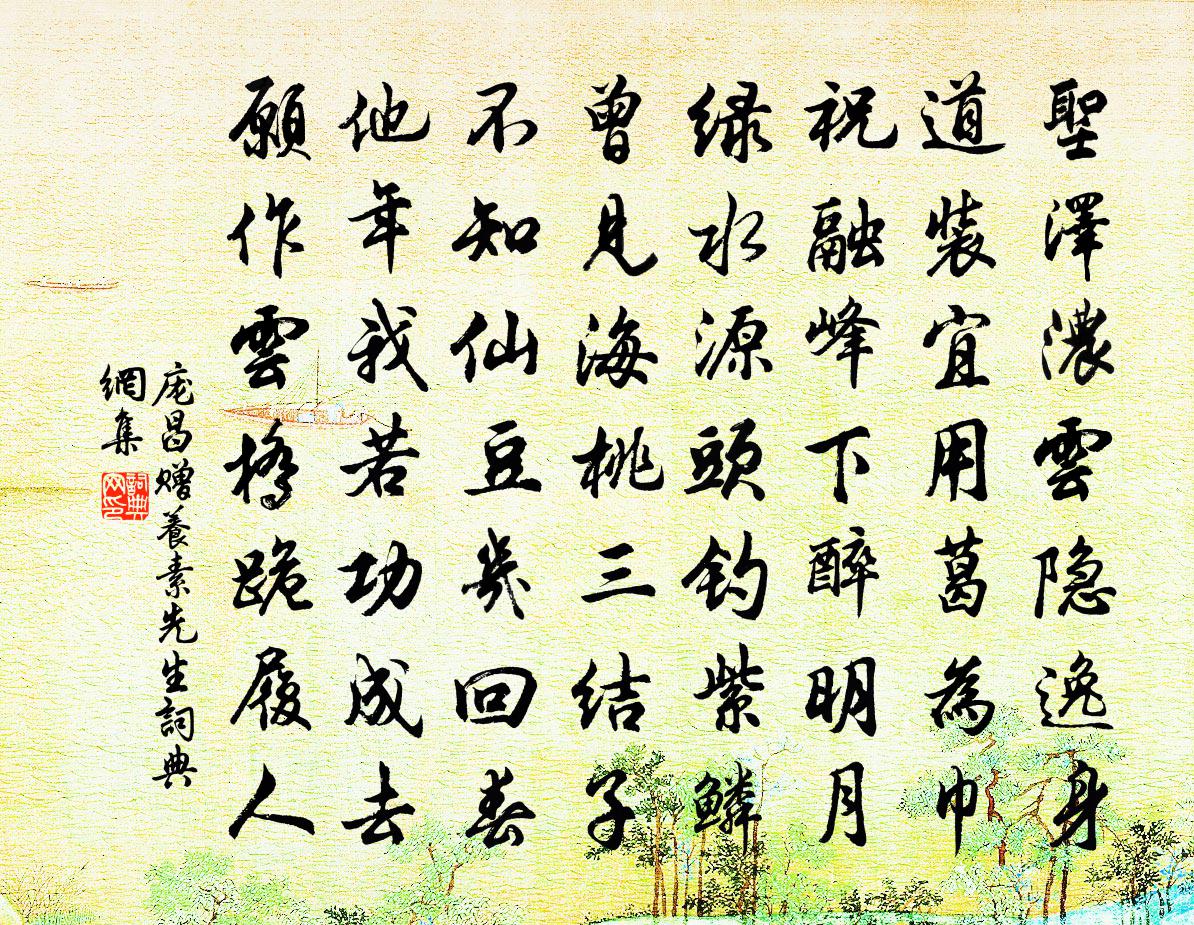 聖澤濃雲隐逸身
道裝宜用葛為巾
祝融峰下醉明月
緑水源頭釣紫鳞
曾見海桃三结子
不知仙豆幾回春
他年我若功成去
願作雲橋跪履人
庞昌赠養素先生詞典
網集
詞典网印